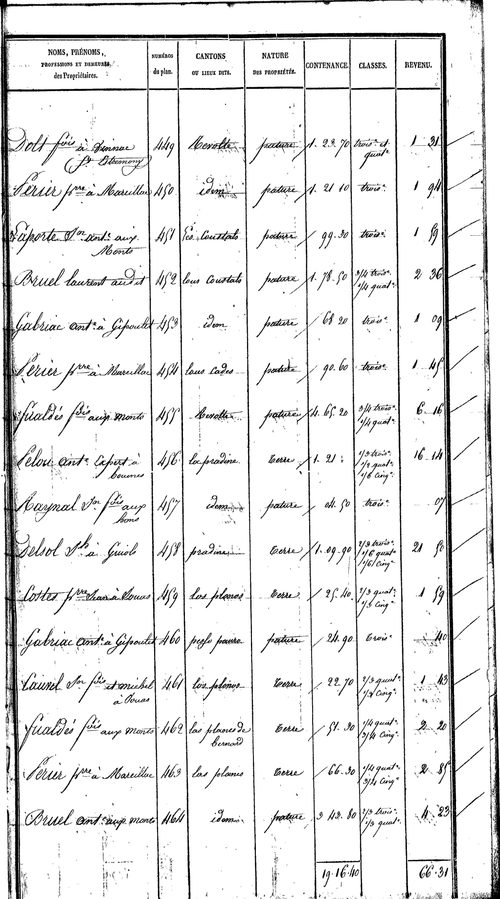 NOMS, PRÉNOMS, PROFESSIONS ET DEMEURES des Propriétaires. NUMÉROS du plan. CANTONS OU LIEUX DITS. NATURE DES PROPRIÉTÉS. CONTENANCE. CLASSES. REVENU.
fois à 449 pature 1. 23. 70 trois. et quat. 1 31
Périer pre à Mareillac 450 idem pature 1. 21 10 trois. 1 94
Laporte Jn ant. aux Monts 451 Les Coustals pature 99. 30 trois. 1 59
Bruel laurent audit 452 lous Coustals pature 1. 78. 50 3/4 trois. 1/4 quat. 2 36
Gabriac ant. à Gipoulet 453 idem pature 68 20 trois. 1 09
Périer pre à Mareillac 454 lous Cades pature 90. 60 trois. 1 45
Gualdés fois aux monts 455 pature 4. 65. 20 3/4 trois. 1/4 quat. 6. 16
Pelou ant. Expert à 456 la pradine terre 1. 21 16. 14
Raynal Jn fois aux 457 idem pature 04. 50 trois. 07
Delsol à 458 pradine terre 1. 09. 90 21 50
Costes pre Jean à 459 las planos terre 25. 40 2/3 quat. 1/3 cinq. 1 59
Gabriac ant. à Gipoulet 460 pature 24. 90 trois. 40
Jn fois et michel à 461 las planos terre 22. 70 2/3 quat. 1/3 cinq. 1 43
Gualdés fois aux monts 462 las planes de bernard terre 51. 30 1/4 quat. 3/4 cinq. 2 20
Périer pre à Mareillac 463 las planes terre 66. 30 1/4 quat. 3/4 cinq. 2 85
Bruel ant. aux monts 464 idem pature 3 43. 80 2/3 trois. 1/3 quat. 4 23
19. 16. 40 66. 31